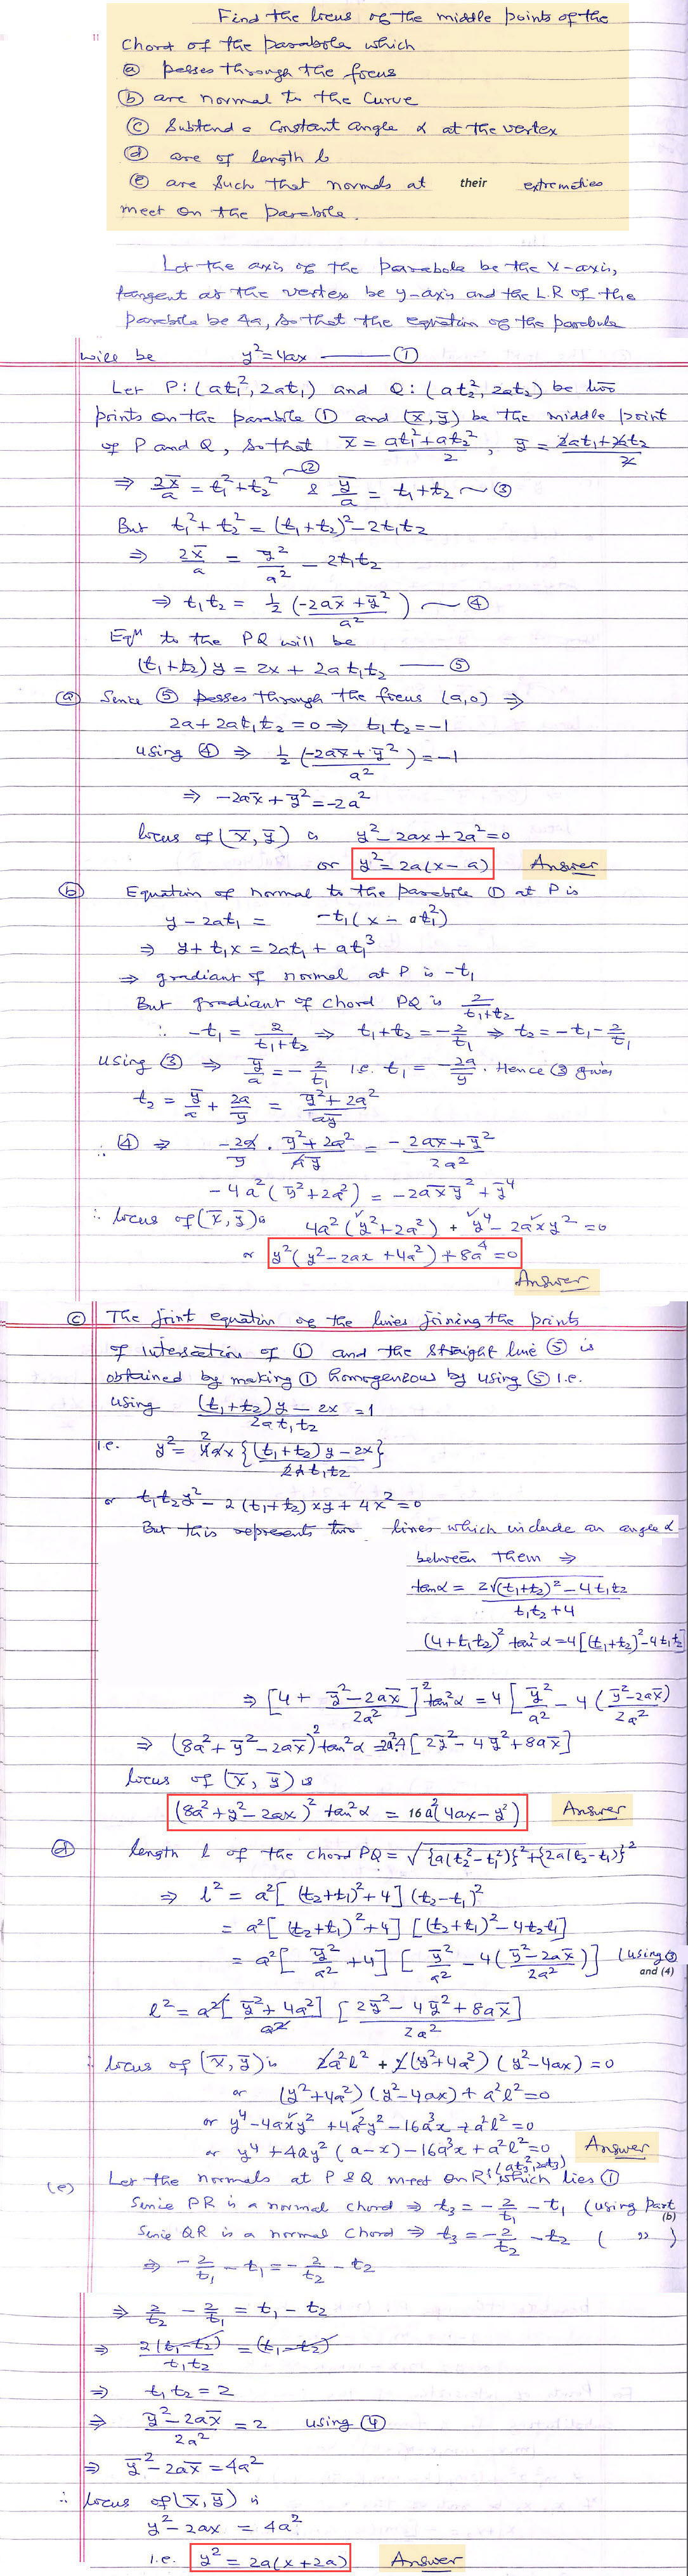 Find the locus of the middle points of the
11 Chord of the parabola which
(a) passes through the focus
(b) are normal to the Curve
(c) Subtend a constant angle α at the vertex
(d) are of length l
(e) are such that normals at their extremeties
meet on the parabola.
Let the axis of the parabola be the X-axis,
tangent at the vertex be y-axis and the L.R of the
parabola be 4a, so that the equation of the parabola
will be y² = 4ax —— (1)
Let P: (at₁², 2at₁) and Q: (at₂², 2at₂) be two
points on the parabola (1) and (x̄, ȳ) be the middle point
of P and Q, so that x̄ = (at₁² + at₂²)/2, ȳ = (2at₁ + 2at₂)/2
⇒ 2x̄/a = t₁² + t₂² ~ (2) & ȳ/a = t₁ + t₂ ~ (3)
But t₁² + t₂² = (t₁ + t₂)² − 2t₁t₂
⇒ 2x̄/a = ȳ²/a² − 2t₁t₂
⇒ t₁t₂ = ½ (−2ax̄ + ȳ²)/a² ~ (4)
Eqⁿ to the PQ will be
(t₁ + t₂) y = 2x + 2a t₁t₂ —— (5)
(a) Since (5) passes through the focus (a, 0) ⇒
2a + 2at₁t₂ = 0 ⇒ t₁t₂ = −1
using (4) ⇒ ½ (−2ax̄ + ȳ²)/a² = −1
⇒ −2ax̄ + ȳ² = −2a²
locus of (x̄, ȳ) is y² − 2ax + 2a² = 0
or y² = 2a(x − a) Answer
(b) Equation of normal to the parabola (1) at P is
y − 2at₁ = −t₁(x − at₁²)
⇒ y + t₁x = 2at₁ + at₁³
⇒ gradiant of normal at P is −t₁
But gradiant of chord PQ is 2/(t₁ + t₂)
∴ −t₁ = 2/(t₁ + t₂) ⇒ t₁ + t₂ = −2/t₁ ⇒ t₂ = −t₁ − 2/t₁
Using (3) ⇒ ȳ/a = −2/t₁ i.e. t₁ = −2a/ȳ. Hence (3) gives
t₂ = ȳ/a + 2a/ȳ = (ȳ² + 2a²)/aȳ
∴ (4) ⇒ −2a/ȳ · (ȳ² + 2a²)/aȳ = (−2ax̄ + ȳ²)/2a²
−4a²(ȳ² + 2a²) = −2ax̄ȳ² + ȳ⁴
∴ locus of (x̄, ȳ) is 4a²(y² + 2a²) + y⁴ − 2axy² = 0
or y²(y² − 2ax + 4a²) + 8a⁴ = 0
Answer
(c) The joint equation of the lines joining the points
of intersection of (1) and the straight line (5) is
obtained by making (1) homogenzous by using (5) i.e.
using ((t₁ + t₂)y − 2x)/2at₁t₂ = 1
i.e. y² = 4ax {(t₁ + t₂)y − 2x}/2at₁t₂
or t₁t₂y² − 2(t₁ + t₂)xy + 4x² = 0
But this represents two lines which include an angle α
between them ⇒
tanα = 2√((t₁ + t₂)² − 4t₁t₂)/(t₁t₂ + 4)
(4 + t₁t₂)² tan²α = 4[(t₁ + t₂)² − 4t₁t₂]
⇒ [4 + (ȳ² − 2ax̄)/2a²]² tan²α = 4[ȳ²/a² − 4(ȳ² − 2ax̄)/2a²
⇒ (8a² + ȳ² − 2ax̄)² tan²α = 2a².4[2ȳ² − 4ȳ² + 8ax̄]
locus of (x̄, ȳ) is
(8a² + y² − 2ax)² tan²α = 16a²(4ax − y²) Answer
(d) length l of the chord PQ = √{a(t₂² − t₁²)}² + {2a(t₂ − t₁)}²
⇒ l² = a²[(t₂ + t₁)² + 4](t₂ − t₁)²
= a²[(t₂ + t₁)² + 4][(t₂ + t₁)² − 4t₂t₁]
= a²[ȳ²/a² + 4][ȳ²/a² − 4(ȳ² − 2ax̄)/2a²] (using (3) and (4)
l² = a²[ȳ² + 4a²]/a² [2ȳ² − 4ȳ² + 8ax̄]/2a²
∴ locus of (x̄, ȳ) is 2a²l² + 2(y² + 4a²)(y² − 4ax) = 0
or (y² + 4a²)(y² − 4ax) + a²l² = 0
or y⁴ − 4axy² + 4a²y² − 16a³x + a²l² = 0
or y⁴ + 4ay²(a − x) − 16a³x + a²l² = 0 Answer
(e) Let the normals at P & Q meet on R:(at₃², 2at₃) which lies (1)
Since PR is a normal chord ⇒ t₃ = −2/t₁ − t₁ (using Part (b)
Since QR is a normal Chord ⇒ t₃ = −2/t₂ − t₂ ( ,, )
⇒ −2/t₁ − t₁ = −2/t₂ − t₂
⇒ 2/t₂ − 2/t₁ = t₁ − t₂
⇒ 2(t₁ − t₂)/t₁t₂ = (t₁ − t₂)
⇒ t₁t₂ = 2
⇒ (ȳ² − 2ax̄)/2a² = 2 using (4)
⇒ ȳ² − 2ax̄ = 4a²
∴ locus of (x̄, ȳ) is
y² − 2ax = 4a²
i.e. y² = 2a(x + 2a) Answer